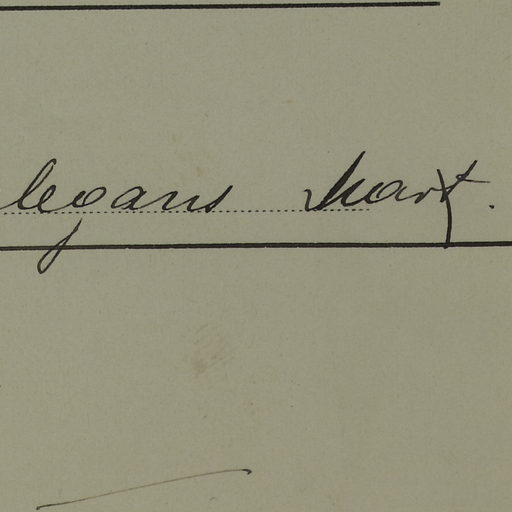 legans Mart.